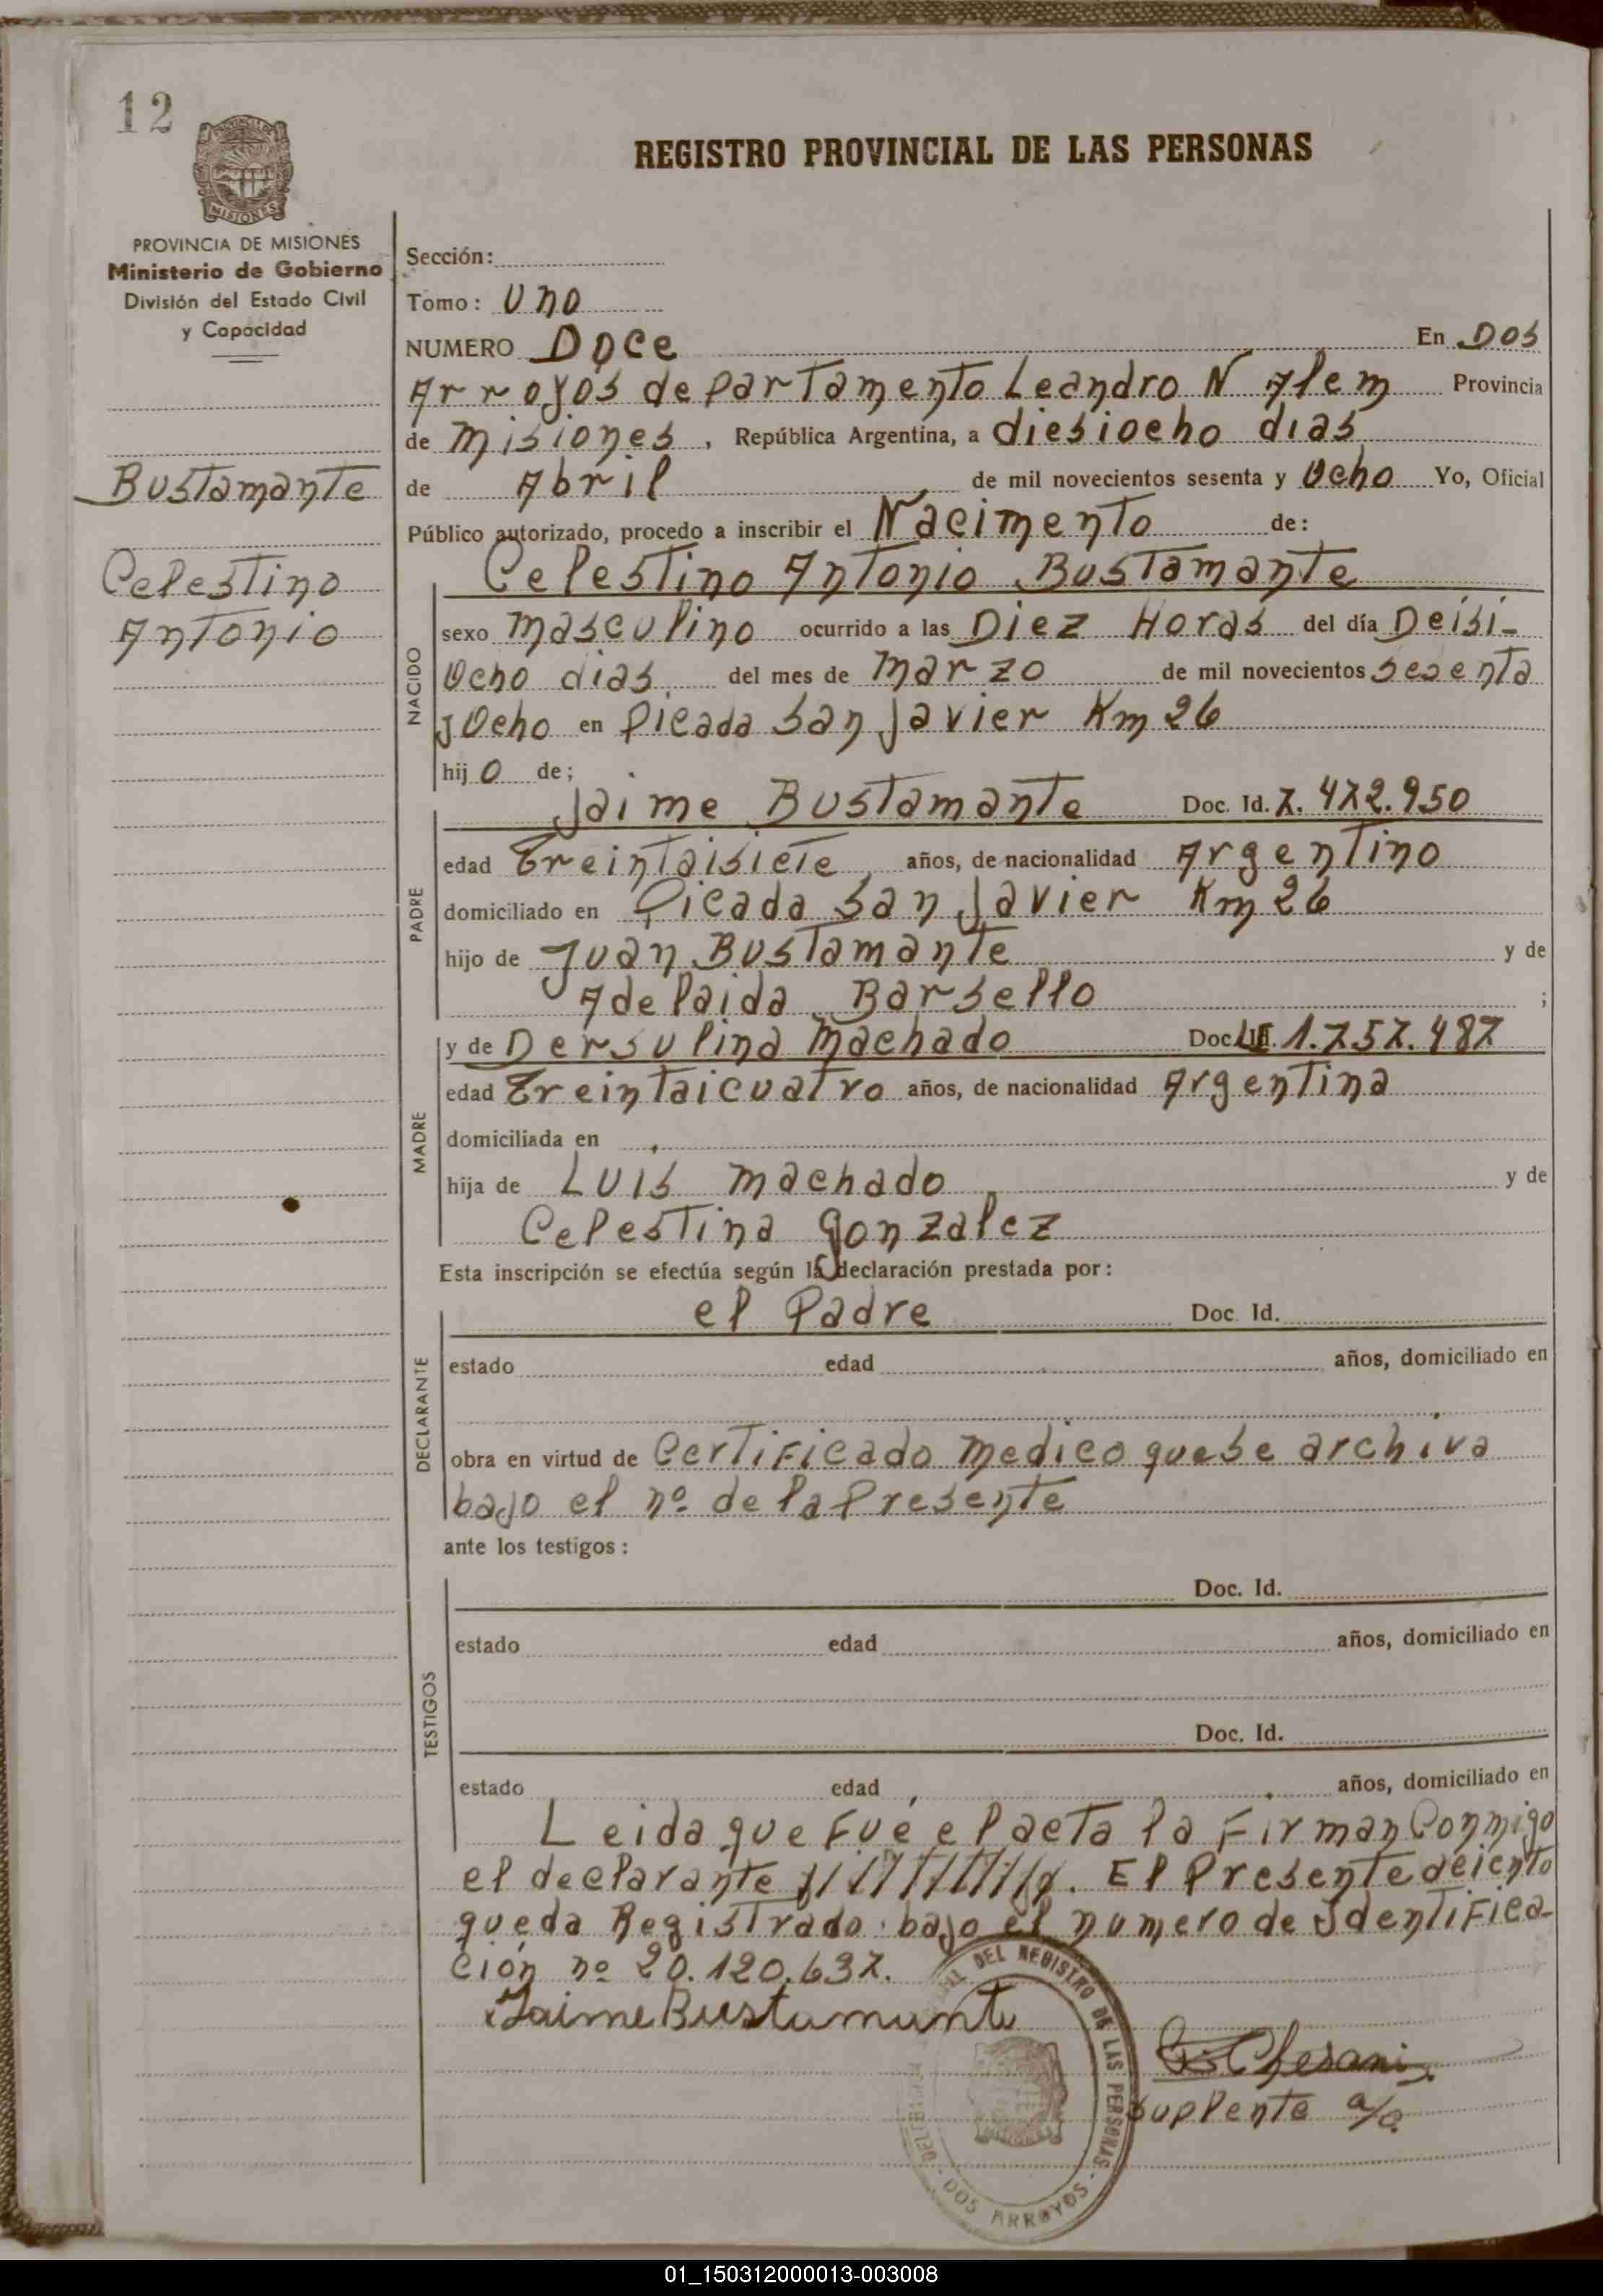 12
REGISTRO PROVINCIAL DE LAS PERSONAS
MISIONES
PROVINCIA DE MISIONES
Ministerio de Gobierno
División del Estado Civil
y Capacidad
Bustamante
Celestino
Antonio
Sección:
Tomo: Uno
NUMERO Doce En Dos
Arroyos departamento Leandro N Alem Provincia
de Misiones, República Argentina, a diesiocho dias
de Abril de mil novecientos sesenta y Ocho Yo, Oficial
Público autorizado, procedo a inscribir el Nacimento de:
NACIDO
Celestino Antonio Bustamante
sexo masculino ocurrido a las Diez Horas del día Deisi-
Ocho dias del mes de Marzo de mil novecientos Sesenta
y Ocho en Picada San Javier Km 26
hijo de;
PADRE
Jaime Bustamante Doc. Id. 7.472.950
edad Treintaisiete años, de nacionalidad Argentino
domiciliado en Picada San Javier Km 26
hijo de Juan Bustamante y de
Adelaida Barsello ;
MADRE
y de Dersulina Machado Doc. 1.757.487
edad Treintaicuatro años, de nacionalidad Argentina
domiciliada en
hija de Luis Machado y de
Celestina Gonzalez
Esta inscripción se efectúa según la declaración prestada por:
DECLARANTE
el Padre Doc. Id.
estado edad años, domiciliado en
obra en virtud de Certificado medico que se archiva
bajo el nº de la Presente
ante los testigos:
TESTIGOS
Doc. Id.
estado edad años, domiciliado en
Doc. Id.
estado edad años, domiciliado en
Leida que fué el acta la Firman Conmigo
el declarante //////////. El Presente deiento
queda Registrado bajo el numero de Identifica-
ción nº 20.120.637.
Jaime Bustamante
Suplente a/c.
DEL REGISTRO DE LAS PERSONAS
DOS ARROYOS
01_150312000013-003008